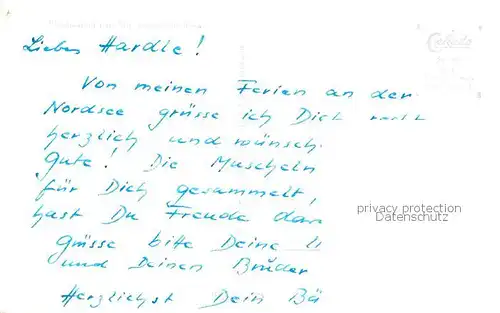 Lieber Hardle!
Von meinen Ferien an der
Nordsee grüsse ich Dich recht
herzlich und wünsch
Gute! Die Muscheln
für Dich gesammelt,
hast Du Freude dar
privacy protection
Datenschutz
Grüsse bitte Deine
und Deinen Bruder
Herzlichst Dein Bä